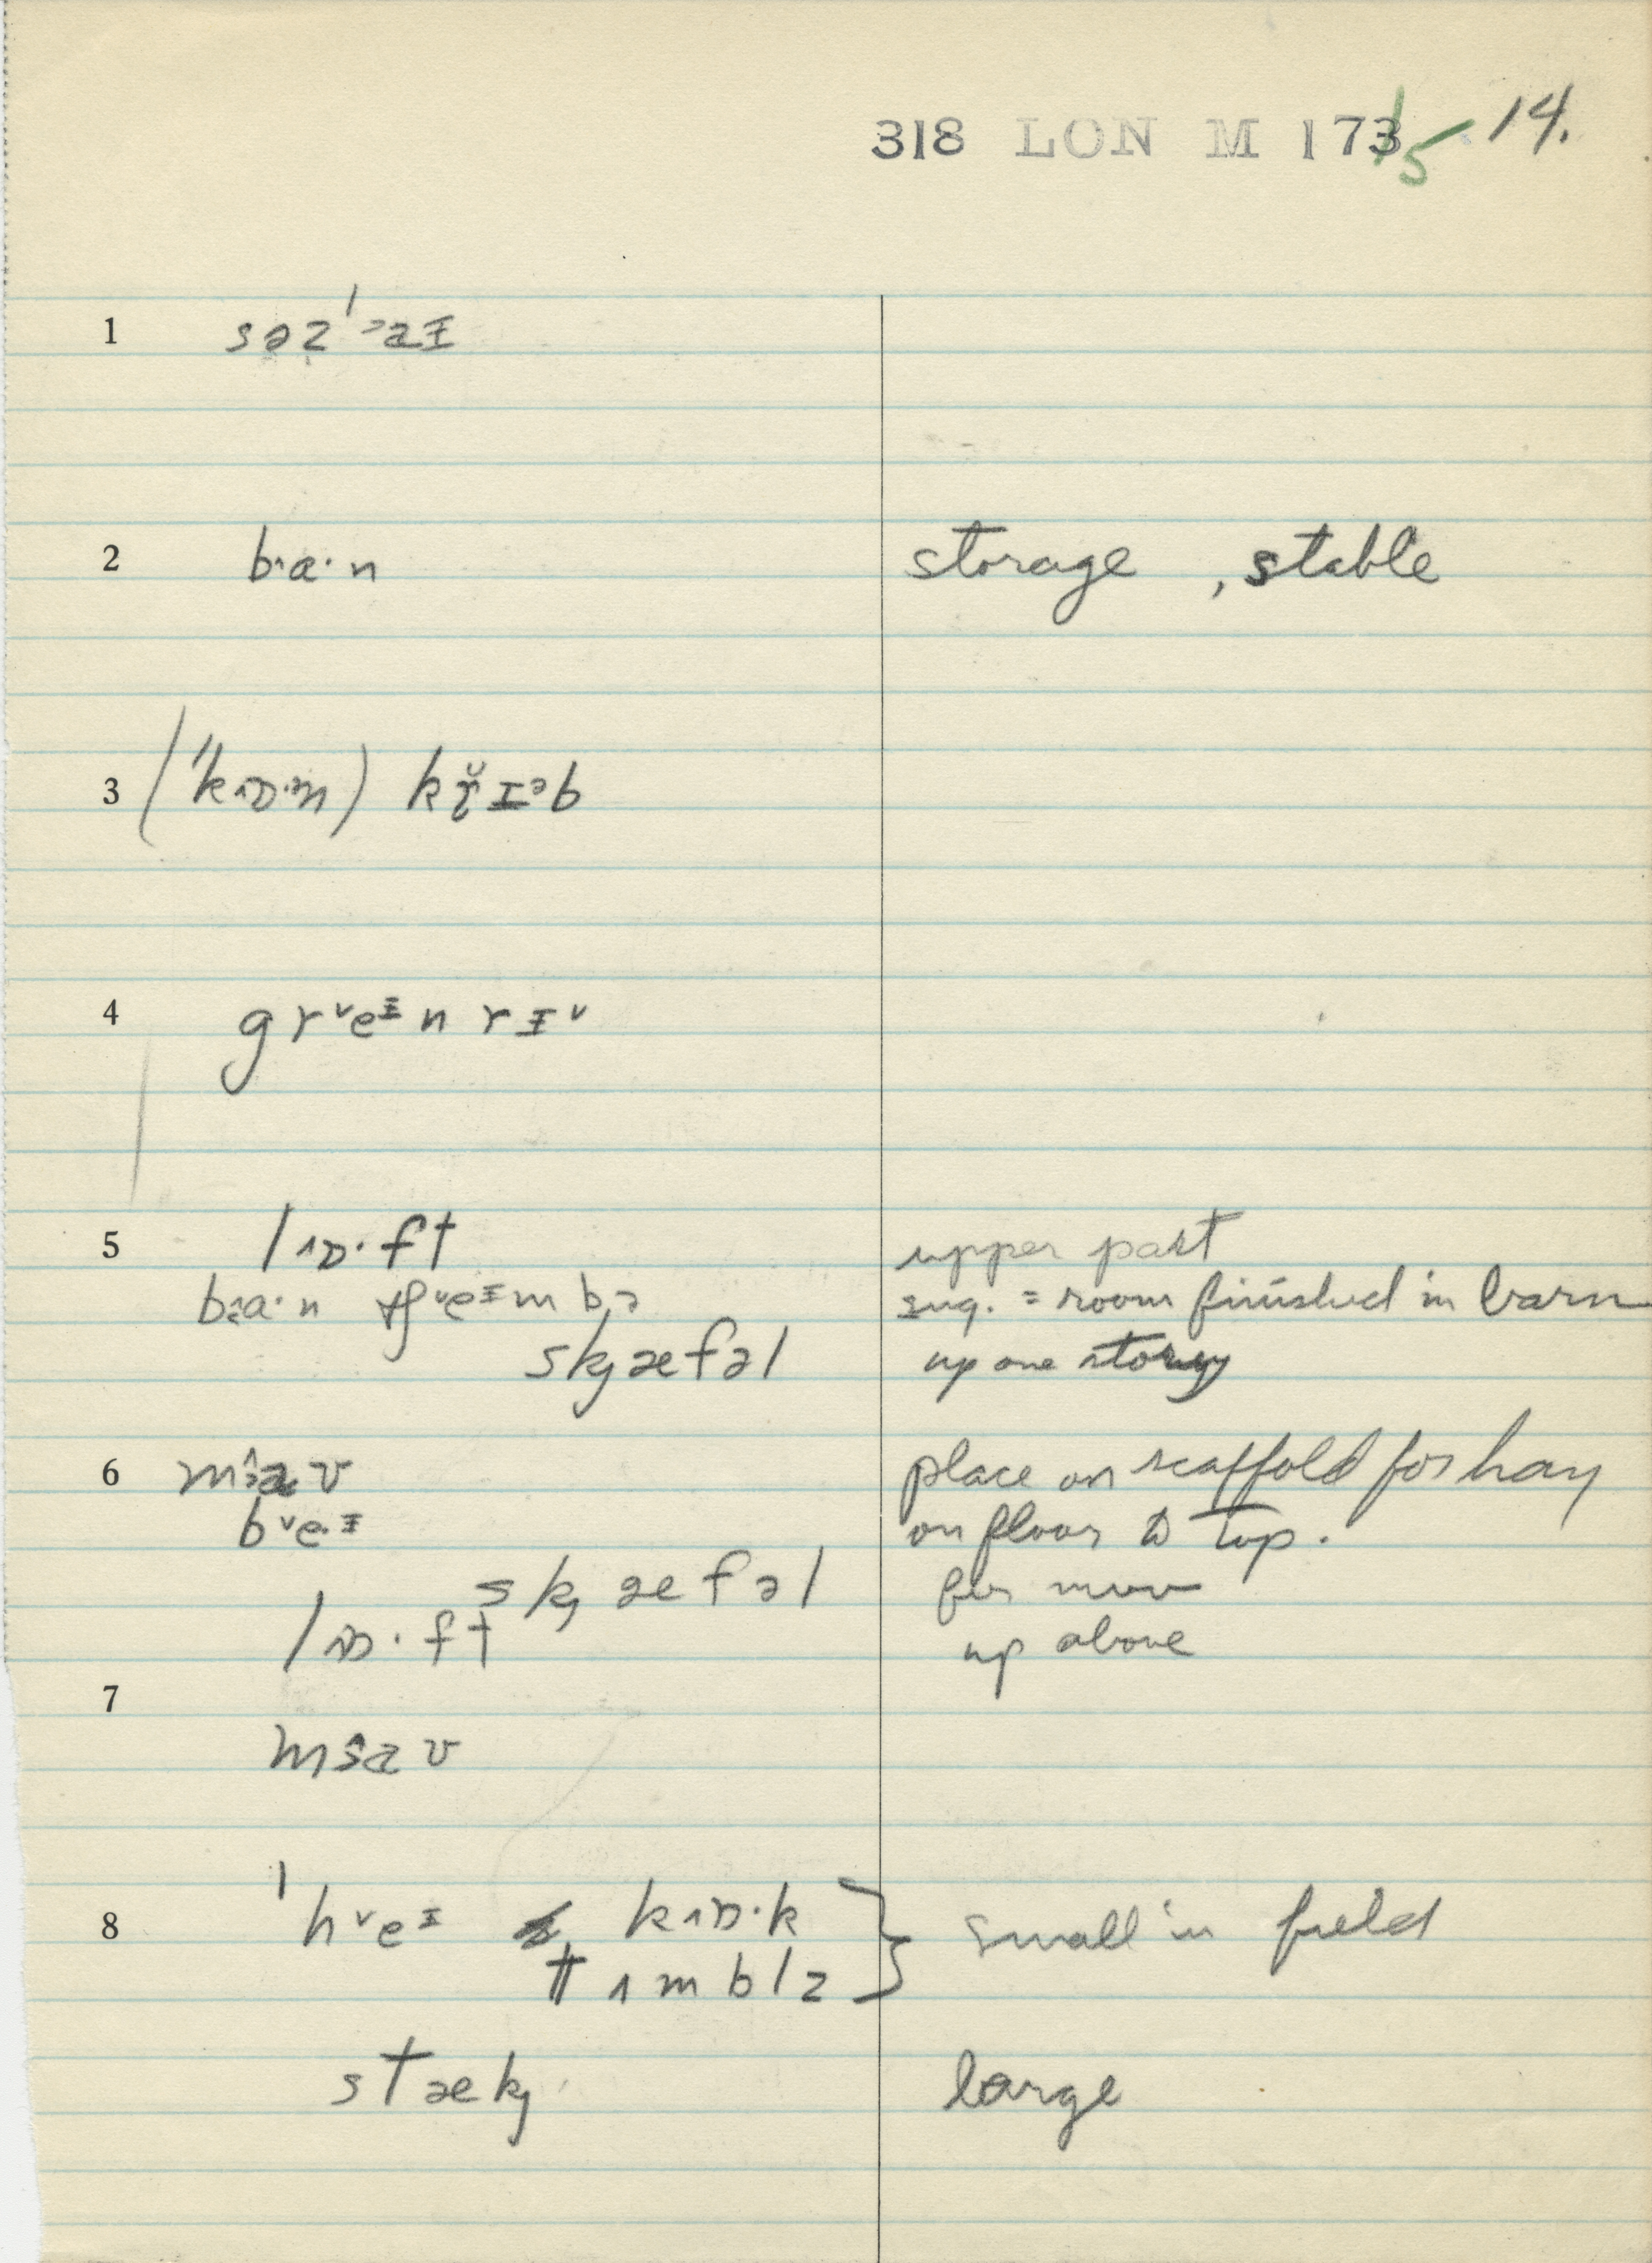 318 LON M 173 5 14.
1 səz'ᵊaɪ
2 b·a·n storage , stable
3 (ˈkɒ·n) kr̆ɪᵊb
4 grᵛeᵻn rɪᵛ
5 lɒ·ft upper part
ba·n fᵛeᵻmbə sug. = room finished in barn
skæfəl up one story
6 place on scaffold for hay
bᵛeᵻ on floor to top.
skæfəl for mow
lɒ·ft up above
7
8 ˈhᵛeᵻ kɒ·k } small in field
tʌmblz
stæk large